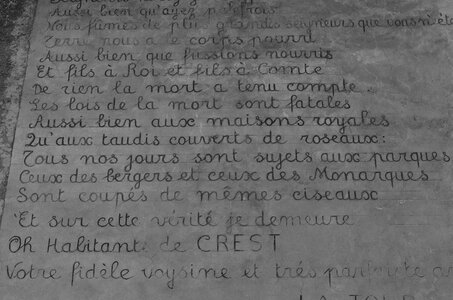 Aussi bien qu'ayez pas trois
Nous fûmes de plus grands seigneurs que vous n'ête
Terre nous a le corps pourri
Aussi bien que fussions nourris
Et fils à Roi et fils à Comte
De rien la mort a tenu compte
Les lois de la mort sont fatales
Aussi bien aux maisons royales
Qu'aux taudis couverts de roseaux:
Tous nos jours sont sujets aux parques
Ceux des bergers et ceux des Monarques
Sont coupés de mêmes ciseaux
Et sur cette vérité je demeure
Oh Habitants de CREST
Votre fidèle voysine et très parfayte a
LA TOU